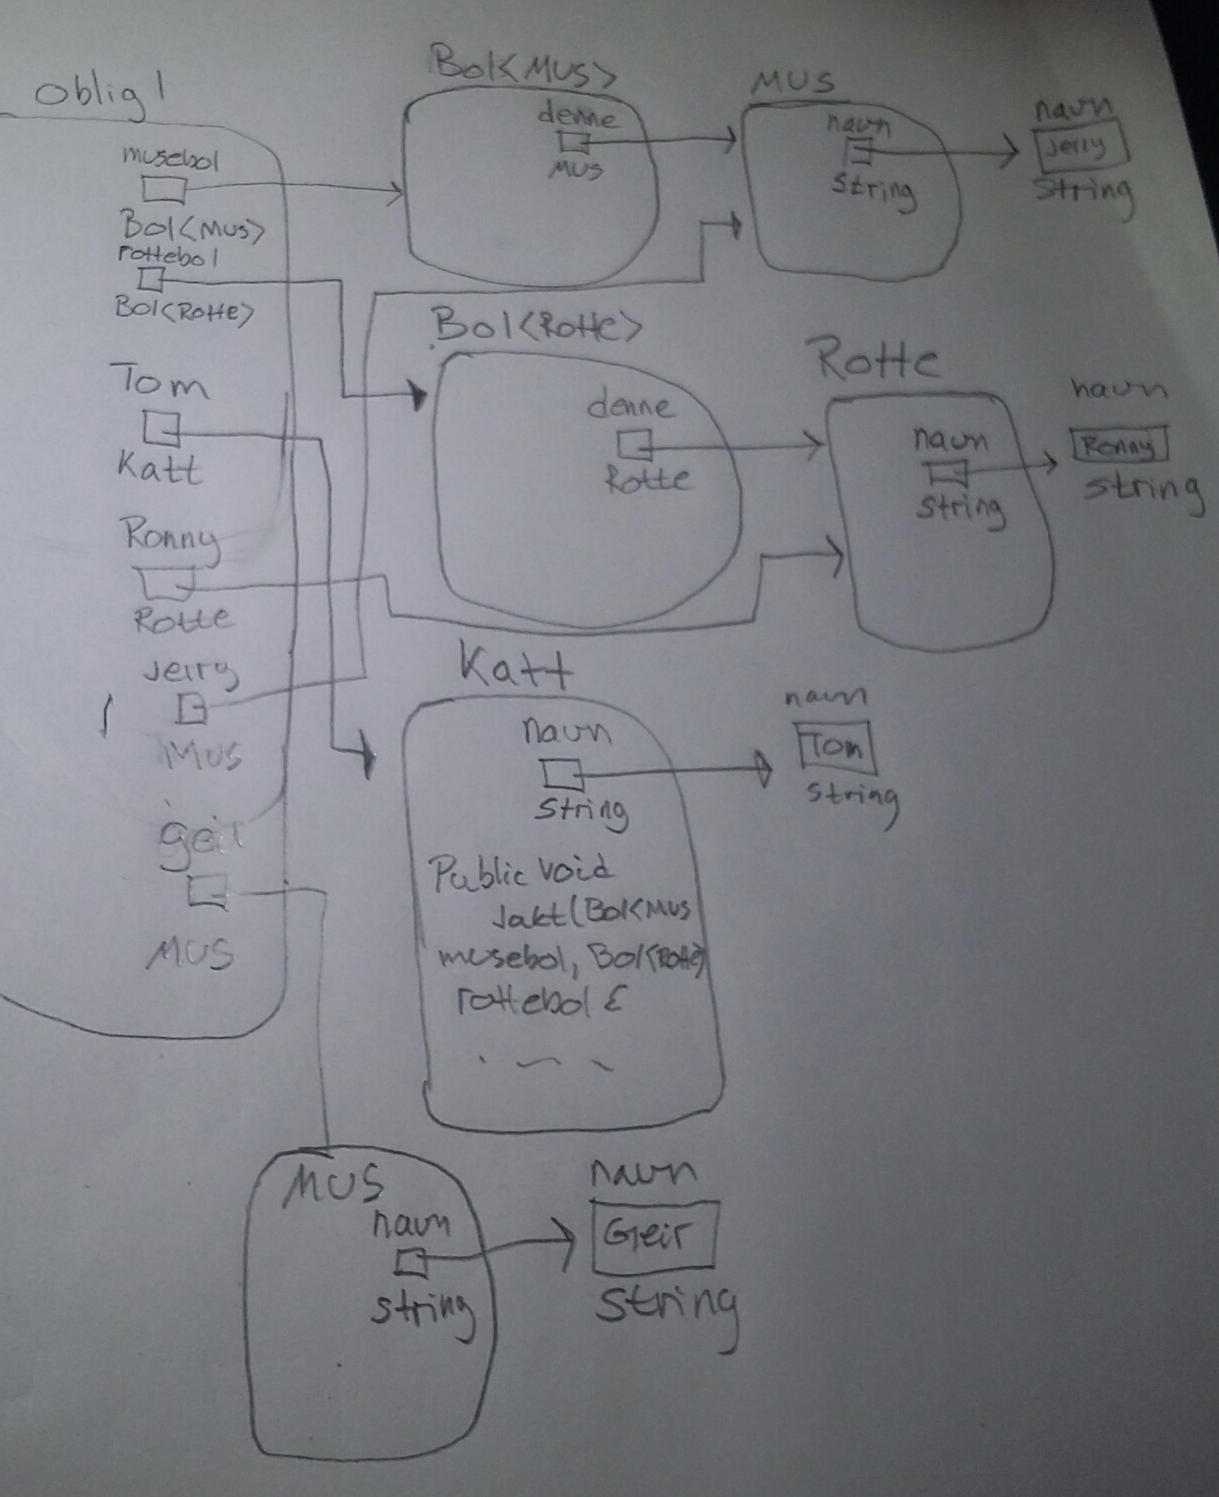 oblig1
musebol
Bol<Mus>
rottebol
Bol<Rotte>
Tom
Katt
Ronny
Rotte
Jerry
Mus
geir
MUS
Bol<Mus>
denne
Mus
MUS
navn
String
navn
Jerry
String
Bol<Rotte>
denne
Rotte
Rotte
navn
String
navn
Ronny
String
Katt
navn
String
Public void
Jakt(Bol<Mus
musebol, Bol<Rotte>
rottebol {
navn
Tom
String
MUS
navn
String
navn
Geir
String